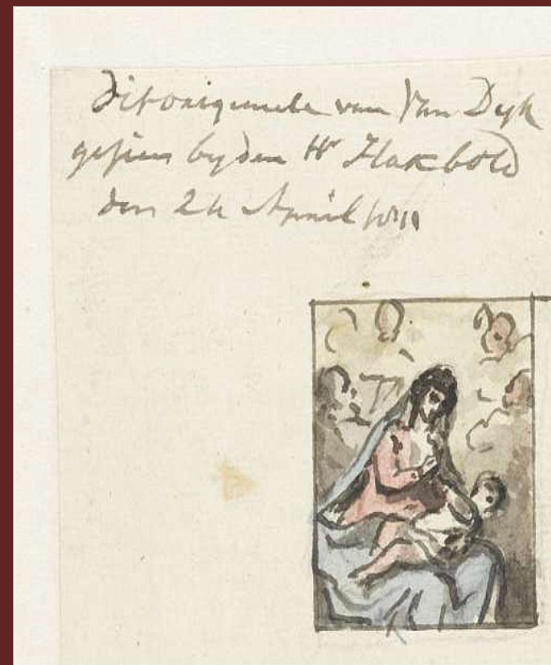 Dit originele van Van Dyk
gesien by den Hr Hakbold
den 24 April